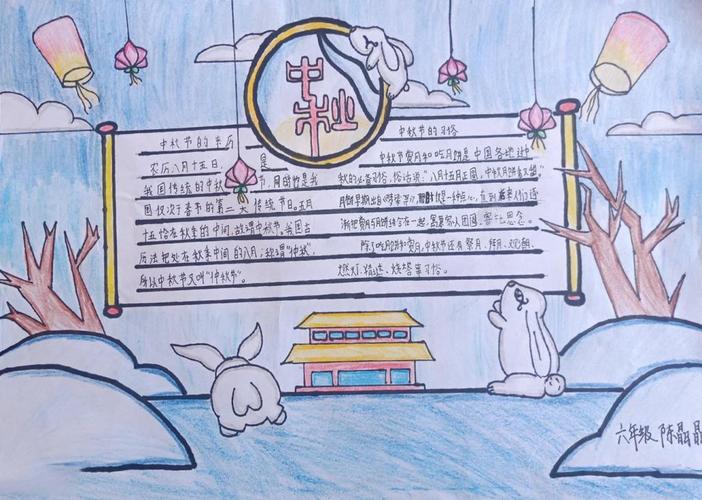 中秋
中秋节的来历
农历八月十五日, 是
我国传统的中秋 节,同时也是我
国仅次于春节的第二大传统节日。五月
十五恰在秋季的中间,故谓中秋节。我国古
历法把处在秋季中间的八月,称谓"仲秋",
所以中秋节又叫"仲秋节"。
中秋节的习俗
中秋节赏月和吃月饼是中国各地过中
秋的必备习俗,俗话说:"八月十五月正圆,中秋月饼香又甜。"
月饼早期出自 是一种点心, 人们逐
渐把赏月与月饼结合在一起,寓意家人团圆,寄托思念。
除了吃月饼和赏月,中秋节还有祭月、拜月、观潮、
燃灯、猜谜、烧塔等习俗。
六年级 陈晶晶